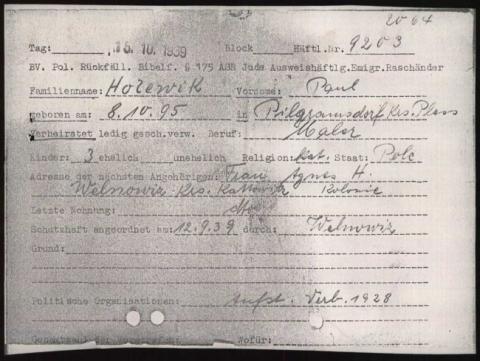 2064
Tag: 15.10.1939 Block Häftl.Nr. 9203
BV. Pol. Rückfäll. Bibelf. § 175 ASR Jude Ausweishäftlg.Emigr.Raschänder
Familienname: Hozewik Vorname: Paul
geboren am: 8.10.95 in Pilgramsdorf Krs. Pless
Verheiratet ledig gesch.verw. Beruf: Maler
Kinder: 3 ehelich unehelich Religion: kat. Staat: Pole
Adresse der nächsten Angehörigen: Frau Agnes H.
Welnowiz Krs. Kattowitz Kolonie
Letzte Wohnung:
Schutzhaft angeordnet am: 12.9.39 durch: Welnowiz
Grund:
Politische Organisationen: Aufst. Verb. 1928
Gesamtzahl der Vorstrafen: Wofür: